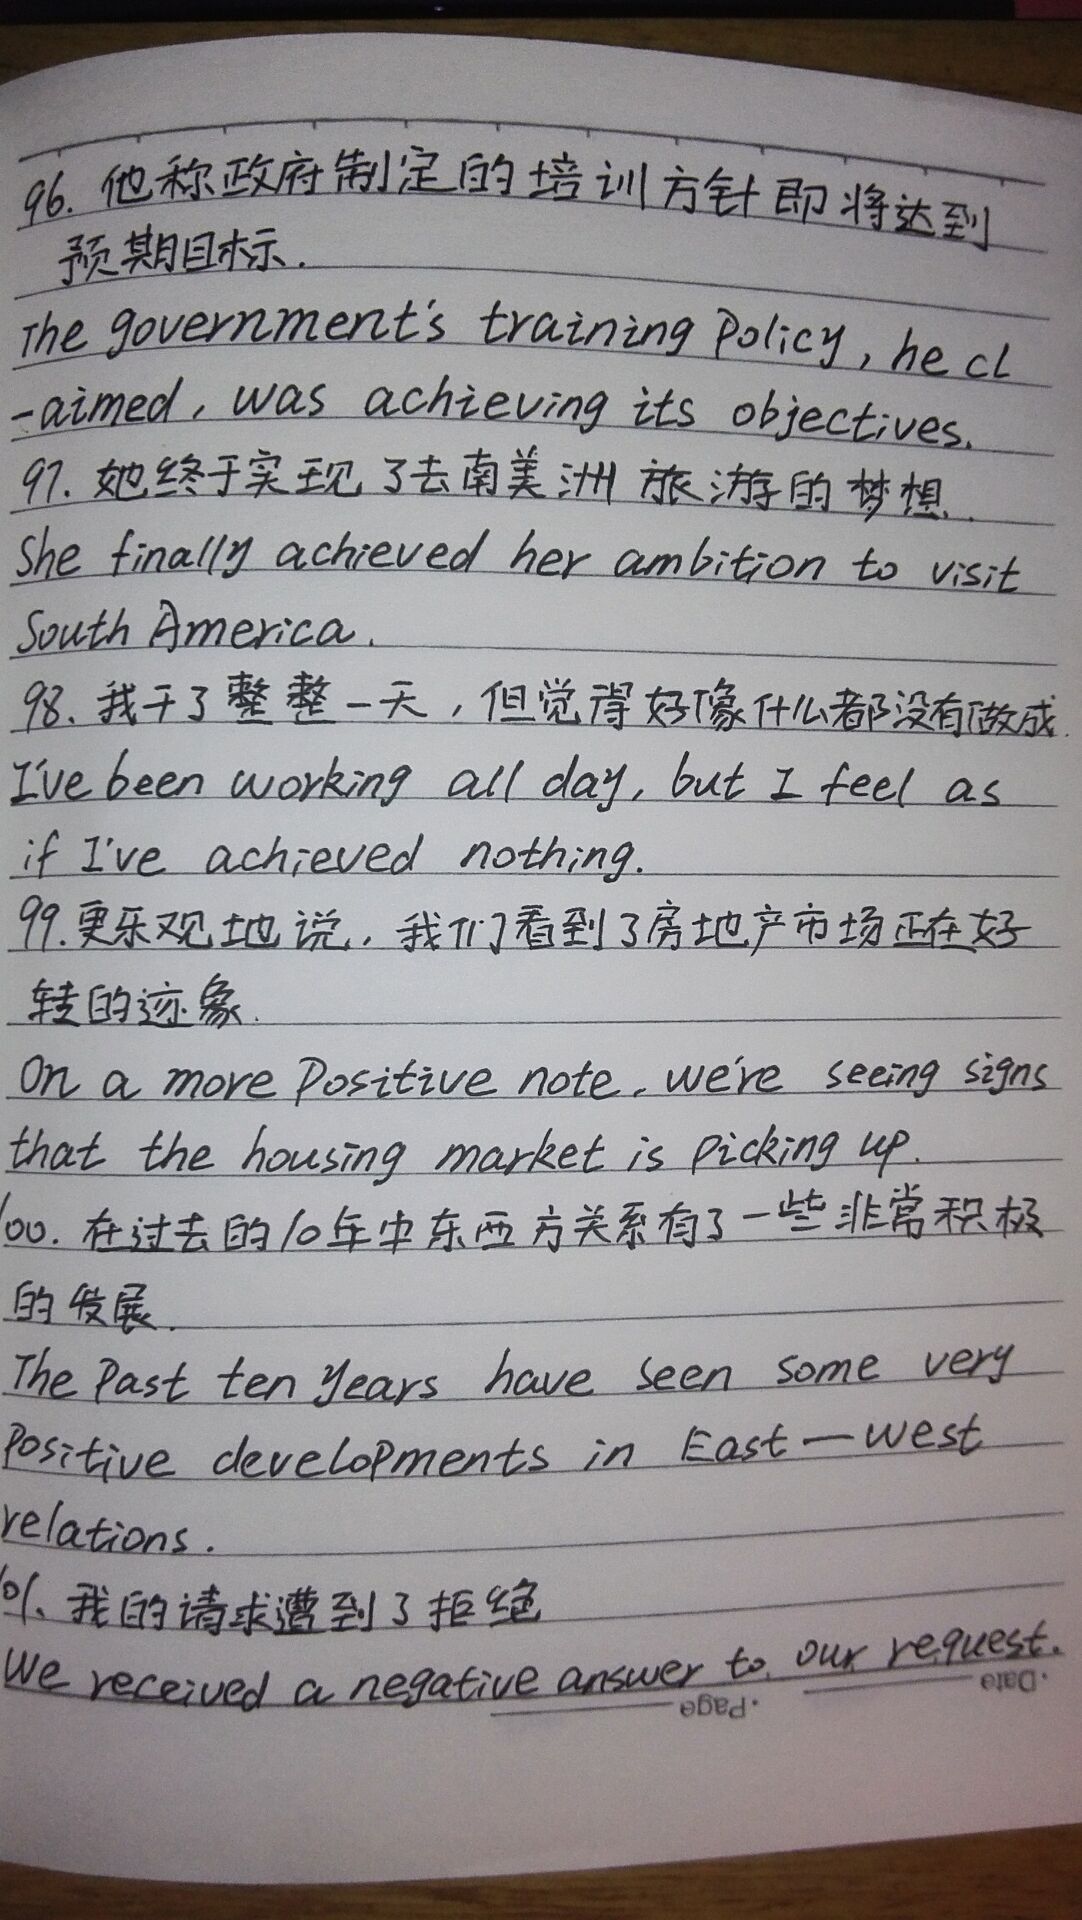 96. 他称政府制定的培训方针即将达到
预期目标.
The government's training Policy, he cl
-aimed, was achieving its objectives.
97. 她终于实现了去南美洲旅游的梦想.
She finally achieved her ambition to visit
South America.
98. 我干了整整一天,但觉得好像什么都没有做成.
I've been working all day, but I feel as
if I've achieved nothing.
99. 更乐观地说,我们看到了房地产市场正在好
转的迹象.
On a more Positive note, we're seeing signs
that the housing market is Picking up.
100. 在过去的10年中东西方关系有了一些非常积极
的发展.
The Past ten years have seen some very
Positive developments in East—west
relations.
101. 我的请求遭到了拒绝
We received a negative answer to our request.
Page.
Date.